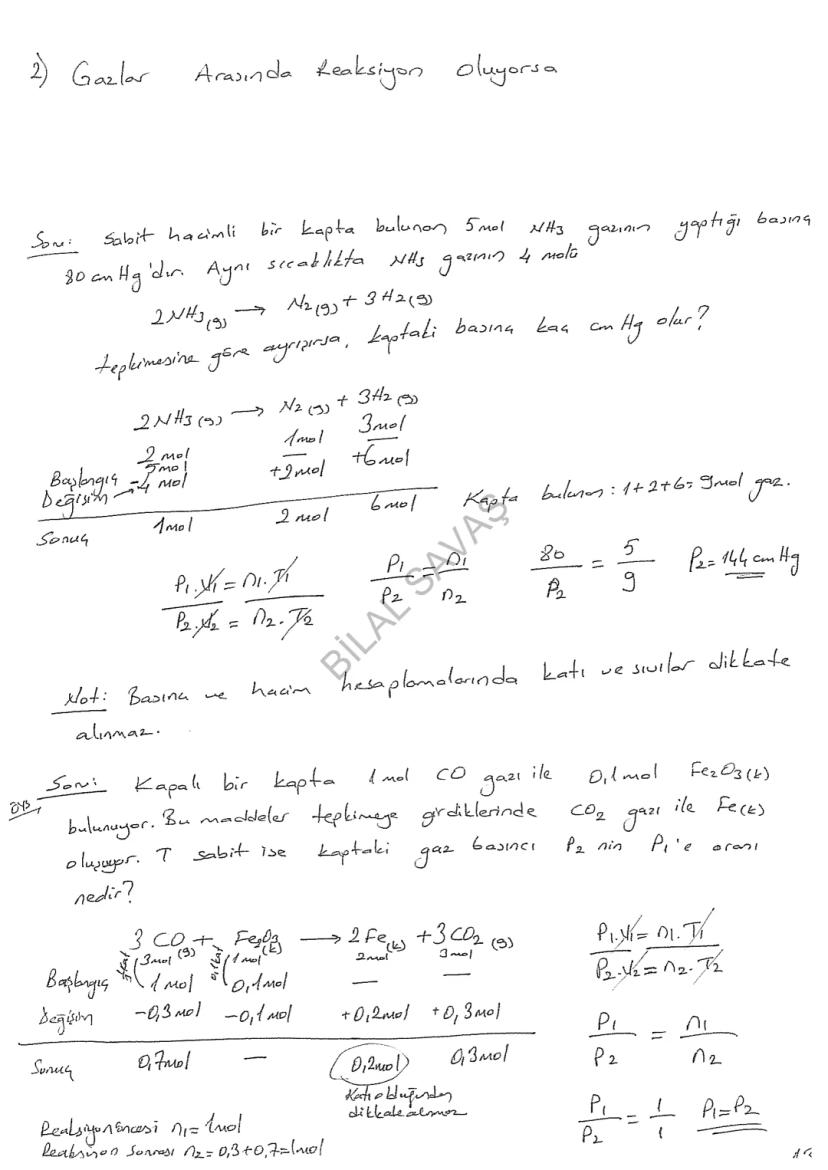 2) Gazlar Arasında Reaksiyon oluyorsa
Soru: Sabit hacimli bir kapta bulunan 5mol NH3 gazının yaptığı basınç
80 cm Hg'dır. Aynı sıcaklıkta NH3 gazının 4 molü
2NH3(g) → N2(g) + 3H2(g)
tepkimesine göre ayrışırsa, kaptaki basınç kaç cm Hg olur?
2NH3(g) → N2(g) + 3H2(g)
2mol 1mol 3mol
Başlangıç 5mol — —
Değişim → -4 mol +2mol +6mol
Sonuç 1mol 2mol 6mol Kapta bulunan: 1+2+6= 9mol gaz.
P1.V1 = n1.T1 / P2.V2 = n2.T2 P1/P2 = n1/n2 80/P2 = 5/9 P2= 144 cm Hg
BİLAL SAVAŞ
Not: Basınç ve hacim hesaplamalarında katı ve sıvılar dikkate
alınmaz.
ÖYS Soru: Kapalı bir kapta 1mol CO gazı ile 0,1mol Fe2O3(k)
bulunuyor. Bu maddeler tepkimeye girdiklerinde CO2 gazı ile Fe(k)
oluşuyor. T sabit ise kaptaki gaz basıncı P2 nin P1'e oranı
nedir?
3CO(g) + Fe2O3(k) → 2Fe(k) + 3CO2(g)
3mol 1mol 2mol 3mol
Başlangıç 1mol 0,1mol — —
Değişim -0,3mol -0,1mol +0,2mol +0,3mol
Sonuç 0,7mol — 0,2mol 0,3mol
Katı olduğundan
dikkate alınmaz
P1.V1 = n1.T1 / P2.V2 = n2.T2
P1/P2 = n1/n2
P1/P2 = 1/1 P1=P2
Reaksiyon öncesi n1= 1mol
Reaksiyon sonrası n2= 0,3+0,7=1mol